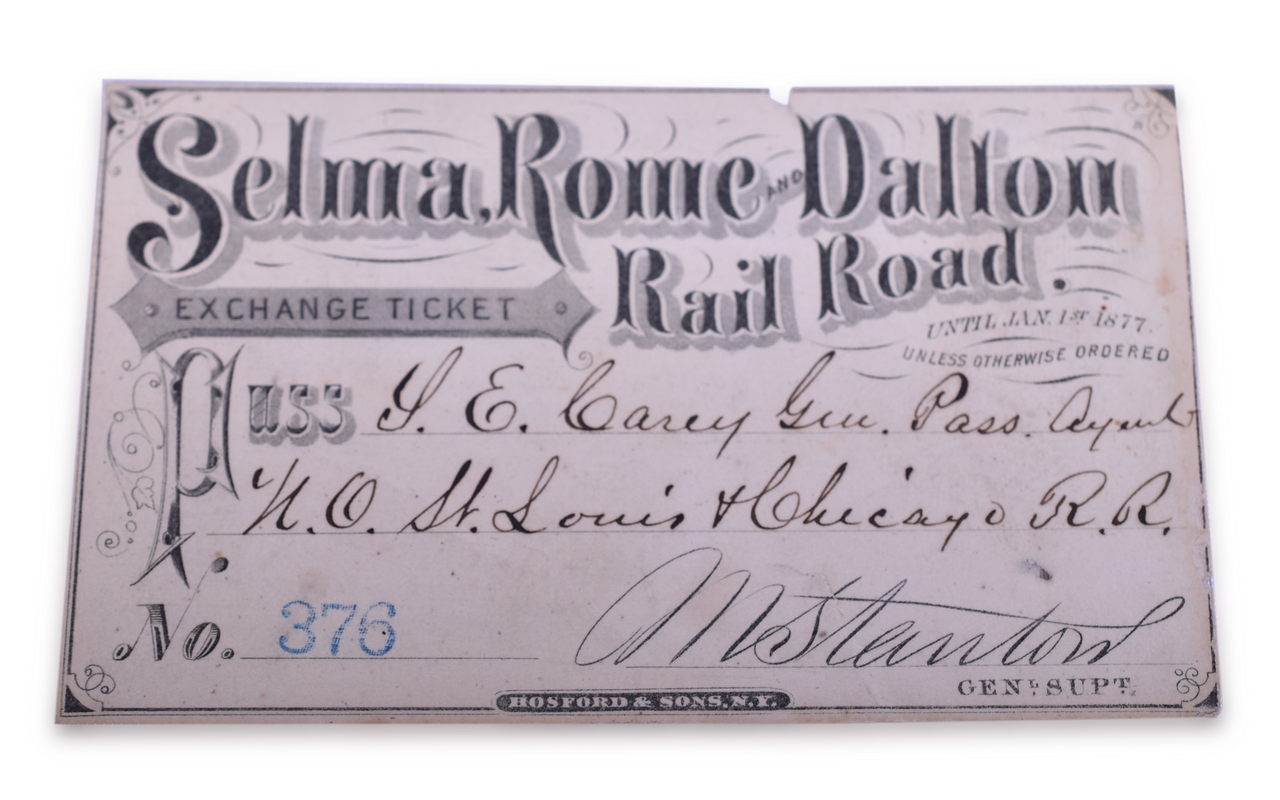 Selma, Rome AND Dalton
Rail Road.
EXCHANGE TICKET
UNTIL JAN. 1ST 1877.
UNLESS OTHERWISE ORDERED
Pass S. E. Carey Gen. Pass. Agent
N. O. St. Louis & Chicago R. R.
No. 376
M Stanton
GENL SUPT.
HOSFORD & SONS, N.Y.